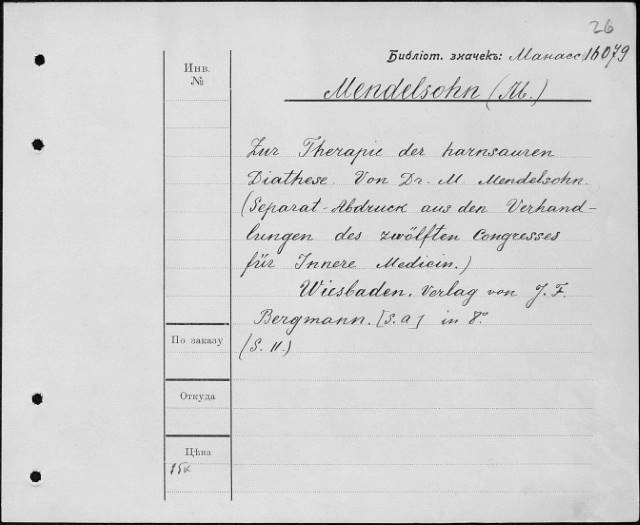 26
Библіот. значекъ: Манасс 16079
Инв.
№
Mendelsohn (M.)
Zur Therapie der harnsauren
Diathese. Von Dr. M. Mendelsohn.
(Separat-Abdruck aus den Verhand-
lungen des zwölften Congresses
für Innere Medicin.)
Wiesbaden. Verlag von J. F.
Bergmann. [S. a] in 8°.
(S. 11.)
По заказу
Откуда
Цѣна
15к